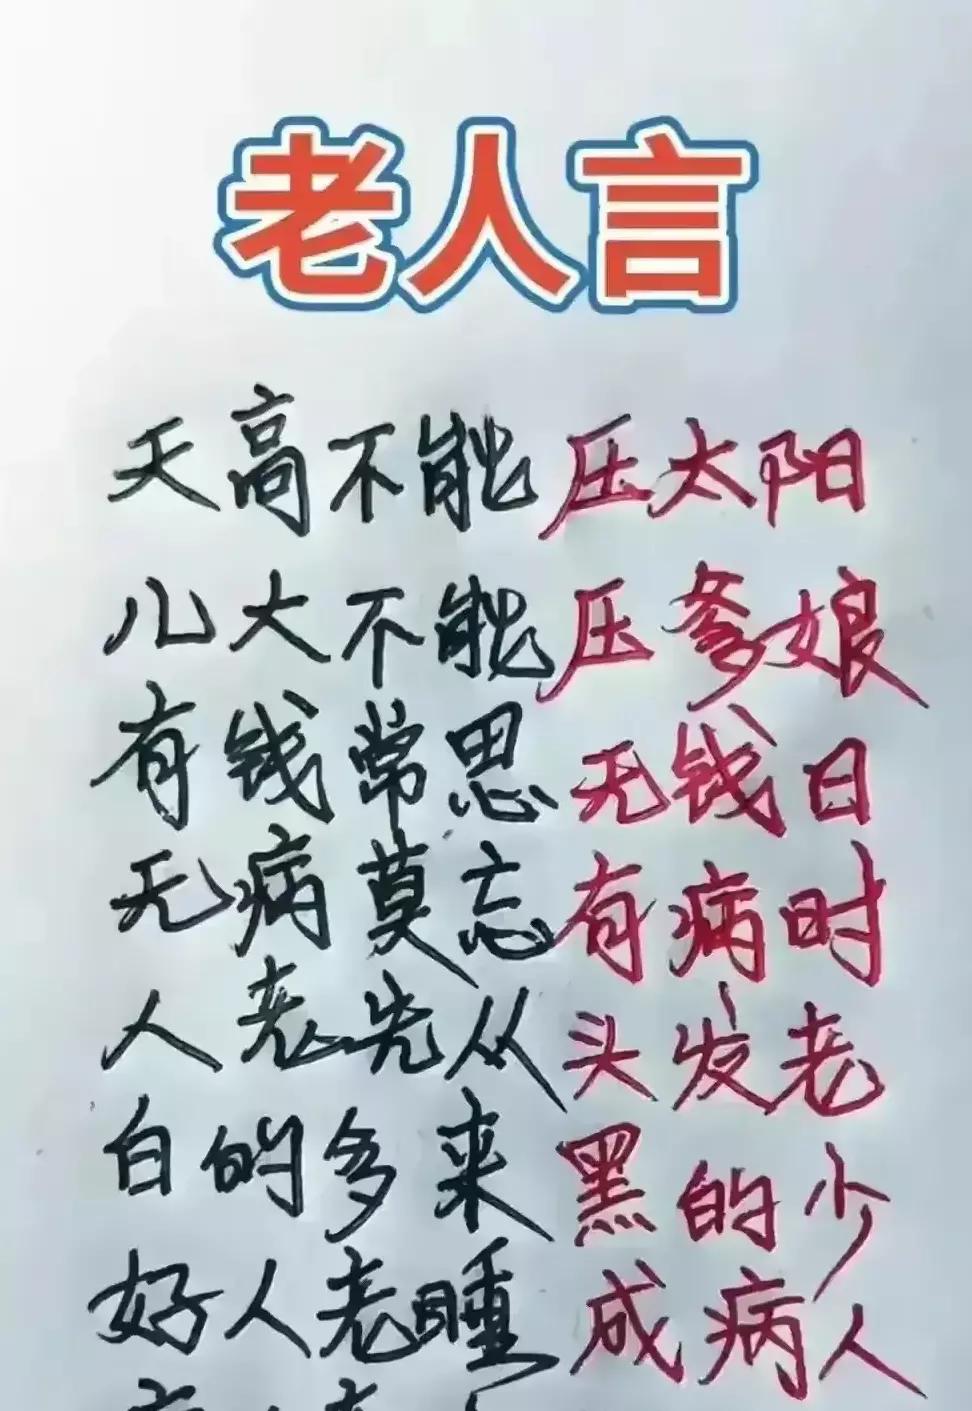 老人言
天高不能压太阳
儿大不能压爹娘
有钱常思无钱日
无病莫忘有病时
人老先从头发老
白的多来黑的少
好人老睡成病人